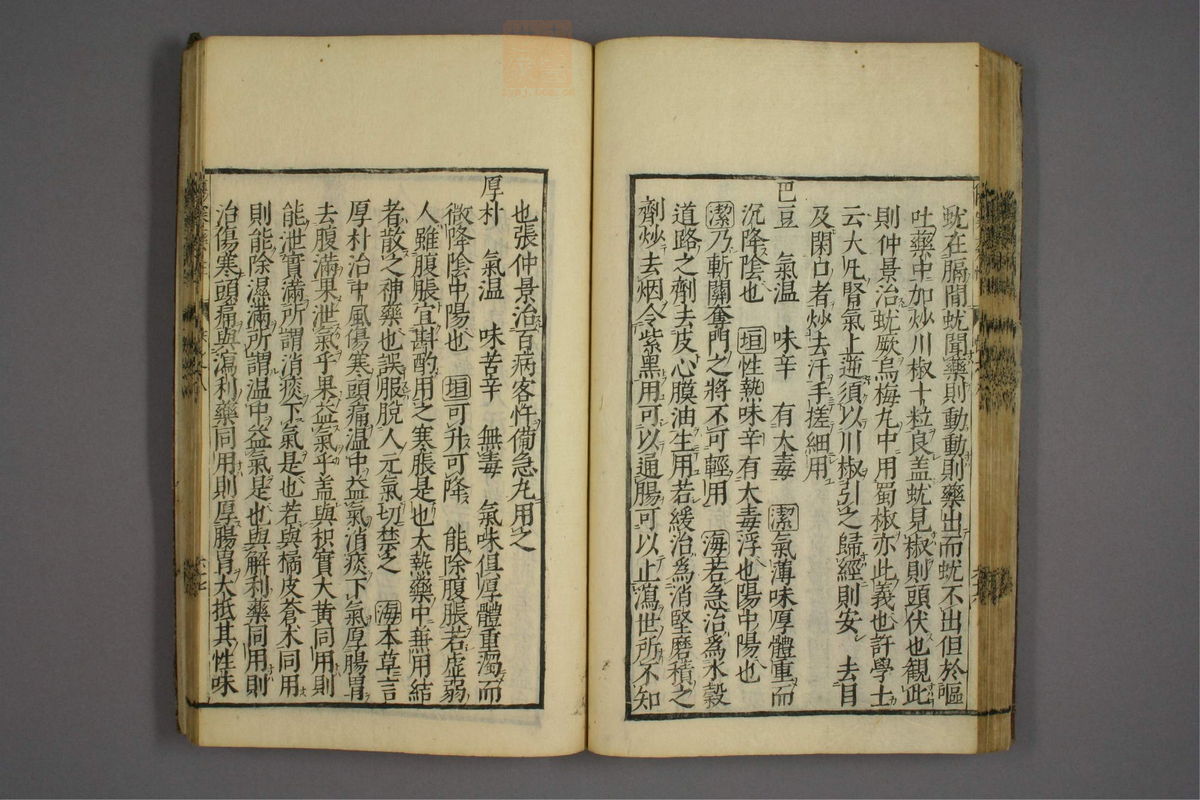 蚘在膈間蚘聞藥則動動則藥出而蚘不出但於嘔
吐藥中加炒川椒十粒良盖蚘見椒則頭伏也觀此
則仲景治蚘厥烏梅丸中用蜀椒亦此義也許學士
云大凡腎氣上逆須以川椒引之歸經則安　去目
及閉口者炒去汗手搓細用
巴豆　氣温　味辛　有大毒　潔氣薄味厚體重而
沉降陰也　垣性熱味辛有大毒浮也陽中陽也
潔乃斬關奪門之將不可輕用　海若急治爲水穀
道路之劑去皮心膜油生用若緩治爲消堅磨積之
劑炒去烟令紫黑用可以通腸可以止瀉世所不知
也張仲景治百病客忤備急丸用之
厚朴　氣温　味苦辛　無毒　氣味俱厚體重濁而
微降陰中陽也　垣可升可降　能除腹脹若虛弱
人雖腹脹宜斟酌用之寒脹是也大熱藥中兼用結
者散之神藥也誤服脫人元氣切禁之　海本草言
厚朴治中風傷寒頭痛温中益氣消痰下氣厚腸胃
去腹滿果泄氣乎果益氣乎盖與枳實大黄同用則
能泄實滿所謂消痰下氣是也若與橘皮蒼术同用
則能除濕滿所謂温中益氣是也與解利藥同用則
治傷寒頭痛與瀉利藥同用則厚腸胃大抵其性味